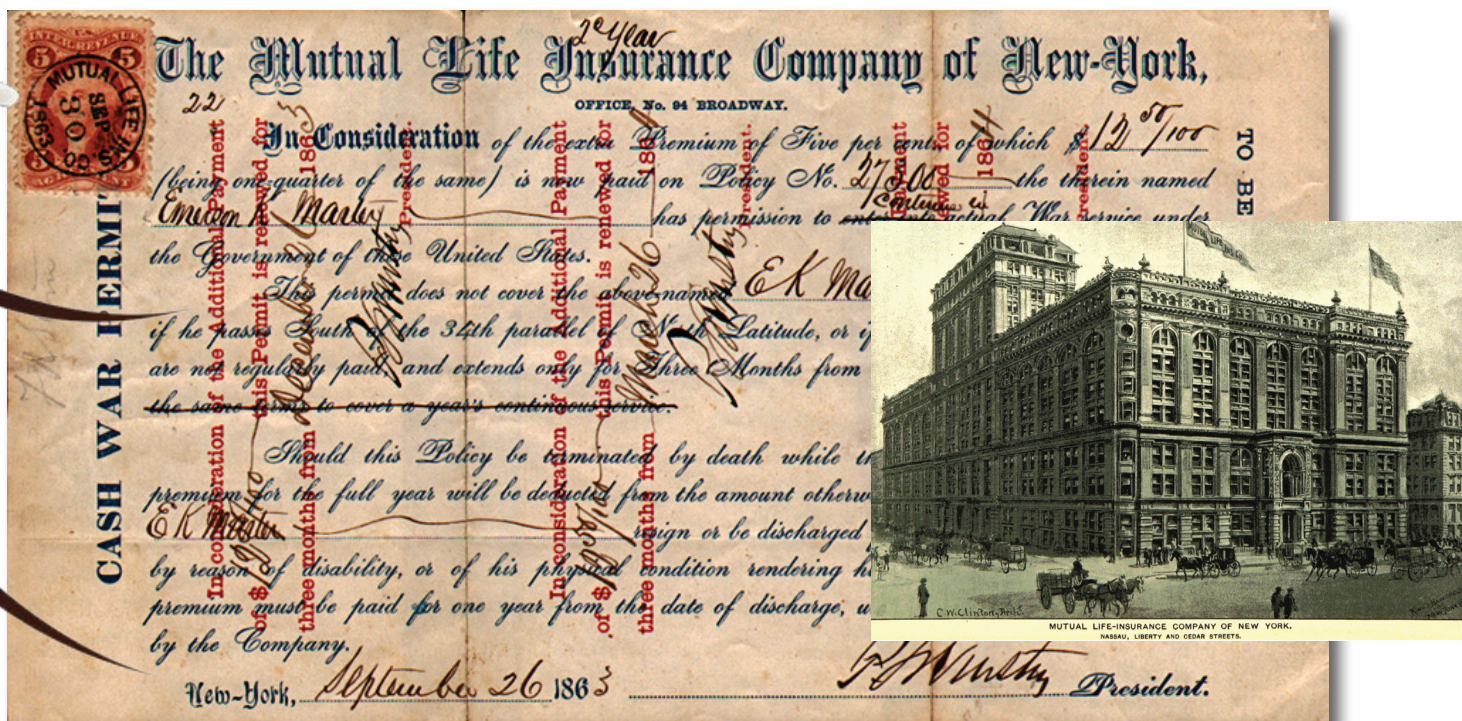 2d Year
The Mutual Life Insurance Company of New-York,
22
OFFICE, No. 94 BROADWAY.
In Consideration of the extra Premium of Five per cent, of which $ 12 50/100
(being one-quarter of the same) is now paid on Policy No. 27500 the therein named
Emerson K. has permission to continue in actual War service under
the Government of these United States.
This permit does not cover the above-named E K
if he passes South of the 34th parallel of North Latitude, or if
are not regularly paid, and extends only for Three Months from
the same terms to cover a year's continuous service.
Should this Policy be terminated by death while
premium for the full year will be deducted from the amount
E K resign or be discharged
by reason of disability, or of his physical condition rendering
premium must be paid for one year from the date of discharge,
by the Company.
New-York, September 26 1863 President.
CASH WAR PERMIT
TO BE
INTER. REV.
5 5
MUTUAL LIFE INS. CO.
SEP
30
1863
5 5
In consideration of the Additional Payment
of $12 50/100 this Permit is renewed for
three months from December 26 1863
President.
In consideration of the Additional Payment
of $ this Permit is renewed for
three months from March 26 186
President.
1864
President.
MUTUAL LIFE
C.W. Clinton, Archt.
MUTUAL LIFE-INSURANCE COMPANY OF NEW YORK.
NASSAU, LIBERTY AND CEDAR STREETS.